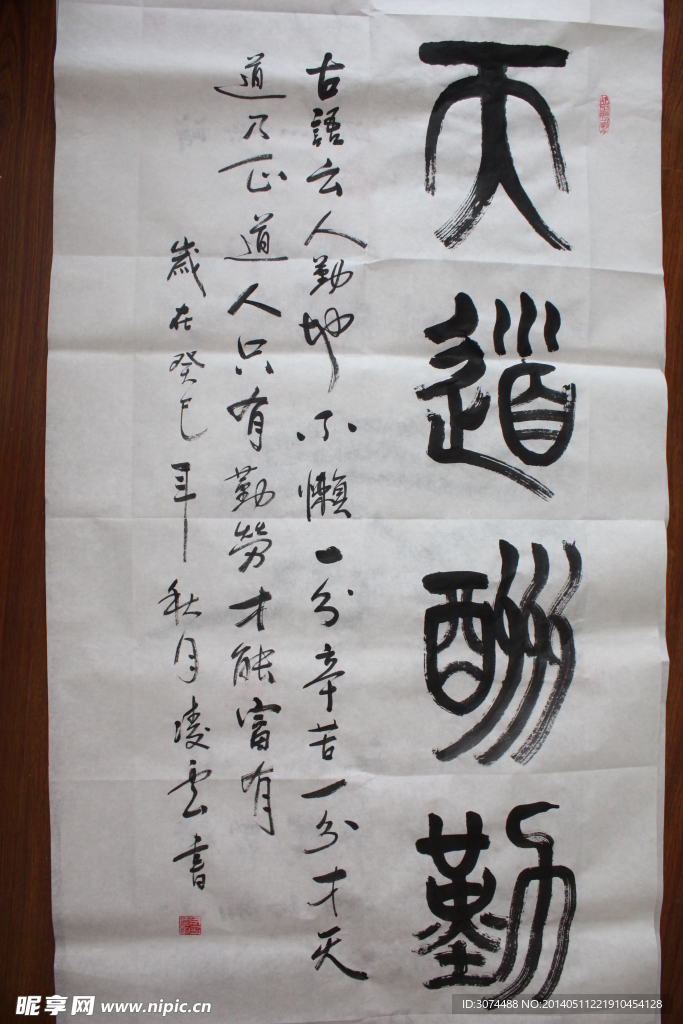 天道酬勤
古語云人勤地不懶一分辛苦一分才天
道乃正道人只有勤勞才能富有
歲在癸巳年秋月凌雲書
昵享网 www.nipic.cn
ID:3074488 NO:20140511221910454128